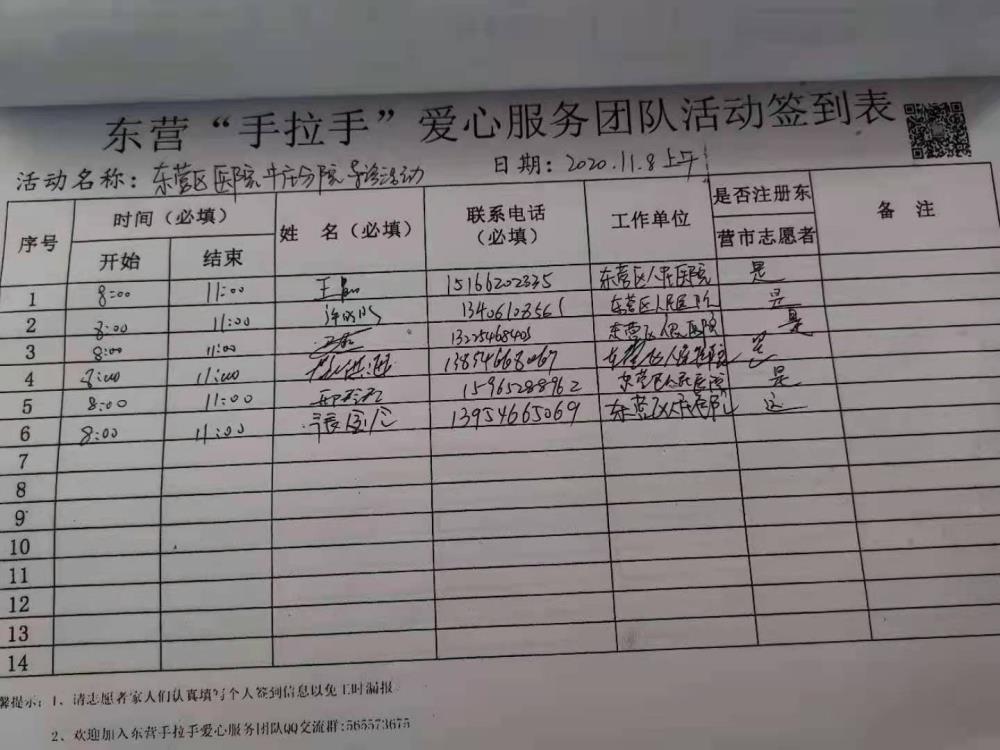 东营“手拉手”爱心服务团队活动签到表
活动名称：东营区医院牛庄分院导诊活动 日期：2020.11.8上午
序号 时间（必填） 姓 名（必填） 联系电话（必填） 工作单位 是否注册东营市志愿者 备 注
开始 结束
1 8:00 11:00 王 15166202335 东营区人民医院 是
2 8:00 11:00 东营区人民医院 是
3 8:00 11:00 13225468405 东营区人民医院 是
4 8:00 11:00 13854668067 东营区人民医院 是
5 8:00 11:00 15965288962 东营区人民医院 是
6 8:00 11:00 张 13954665069 东营区人民医院 是
7
8
9
10
11
12
13
14
馨提示：1、请志愿者家人们认真填写个人签到信息以免工时漏报
2、欢迎加入东营手拉手爱心服务团队QQ交流群:565573675